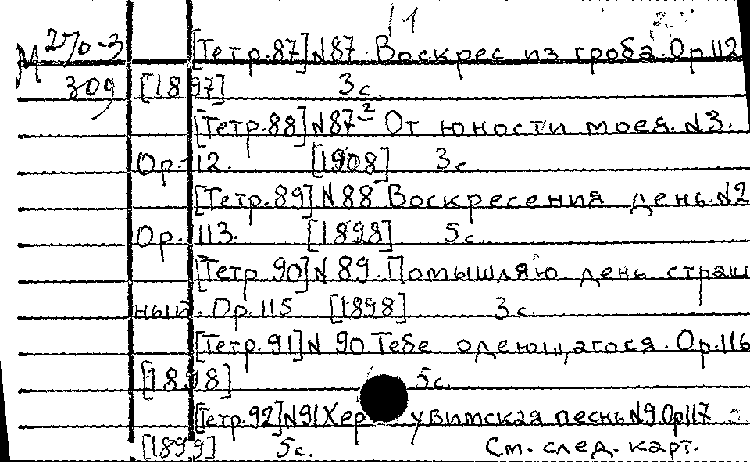 11
М 270-3 [Тетр.87] N87. Воскрес из гроба. Ор 112
309 [1897] 3с.
[Тетр.88] N87-² От юности моея. N3.
Ор. 112. [1908] 3с
[Тетр.89] N88 Воскресения день. N2
Ор. 113. [1898] 5с.
[Тетр.90] N89. Помышляю день страш
ный. Ор. 115 [1898] 3с.
[Тетр.91] N 90 Тебе одеющагося. Ор.116
[1898] 5с.
[Тетр.92] N91 Хер увимская песнь N9. Ор117
[1899] 5с. См. след. карт.